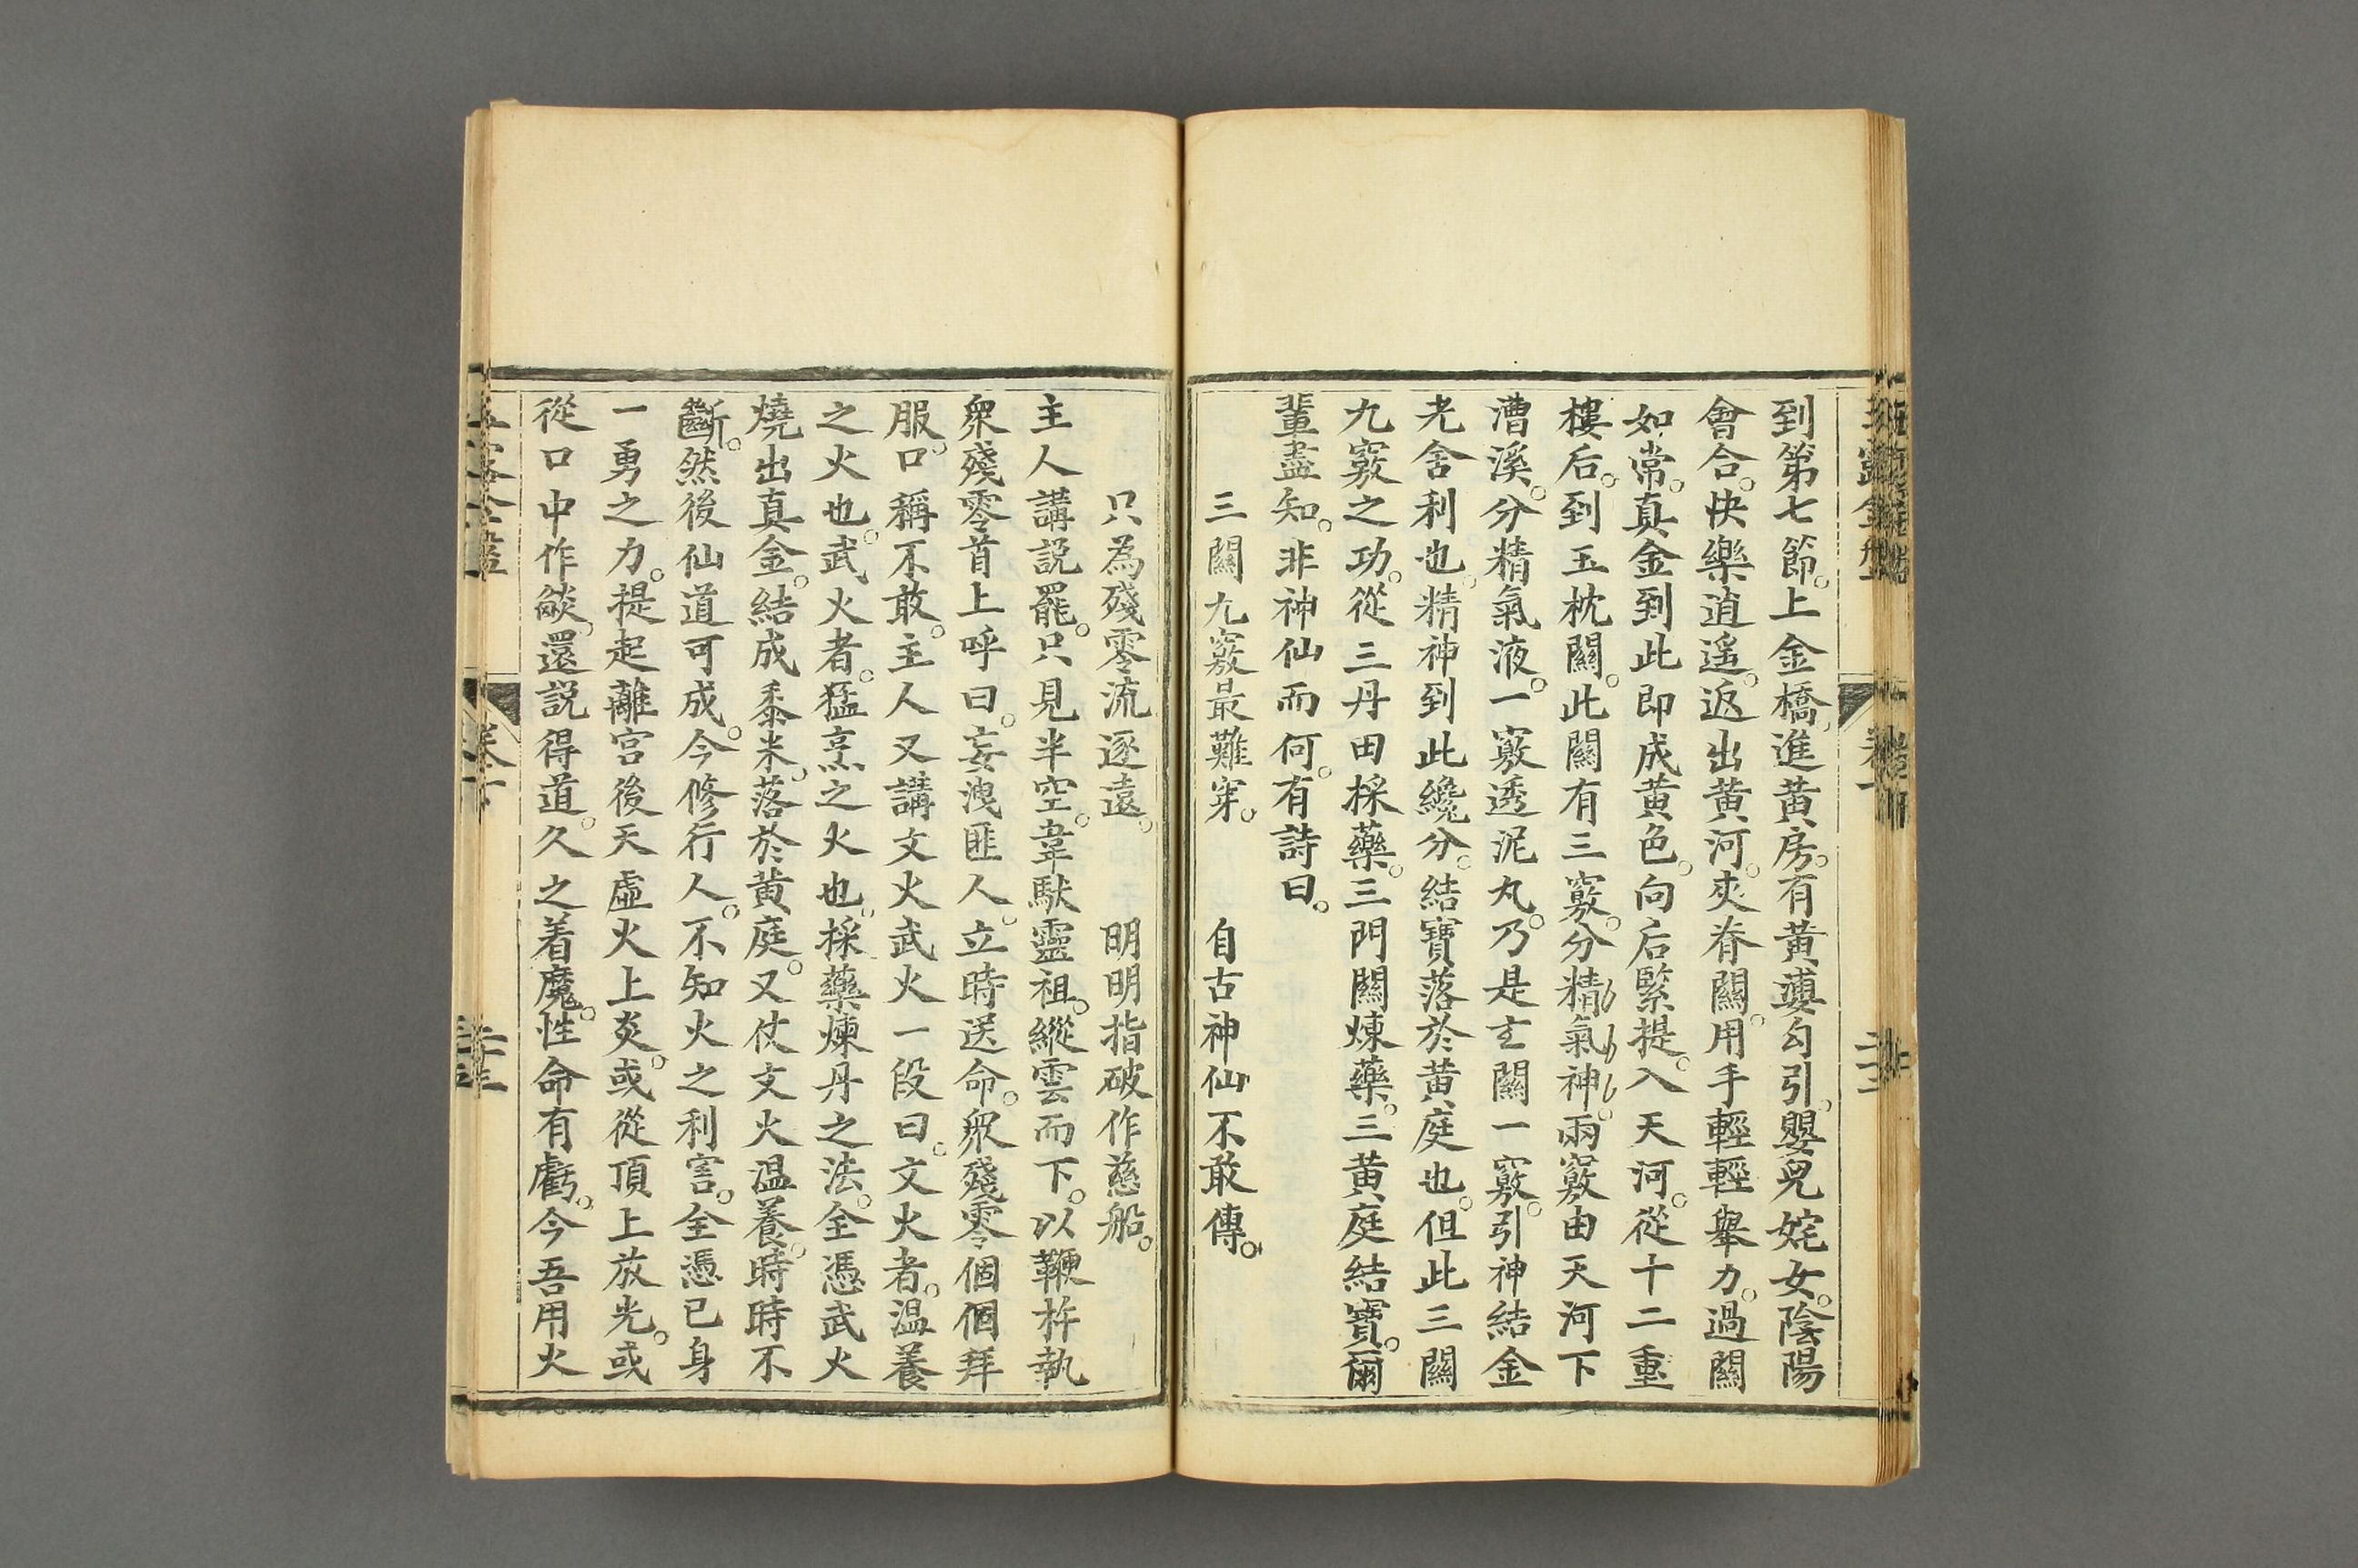 到第七節。上金橋。進黃房。有黃婆勾引。嬰兒姹女。陰陽
會合。快樂逍遙。返出黃河。夾脊關。用手輕輕舉力。過關
如常。真金到此即成黃色。向后緊提。入天河。從十二重
樓后。到玉枕關。此關有三竅。分精氣神。兩竅由天河下
漕溪。分精氣液。一竅透泥丸。乃是玄關一竅。引神結金
光舍利也。精神到此纔分。結寶落於黃庭也。但此三關
九竅之功。從三丹田採藥。三門關煉藥。三黃庭結寶。爾
輩盡知。非神仙而何。有詩曰。
三關九竅最難穿。 自古神仙不敢傳。
只為殘零流逐遠。 明明指破作慈船。
主人講説罷。只見半空。韋馱靈祖。縱雲而下。以鞭杵執
衆殘零首上呼曰。妄洩匪人。立時送命。衆殘零個個拜
服。口稱不敢。主人又講文火武火一段曰。文火者。温養
之火也。武火者。猛烹之火也。採藥煉丹之法。全憑武火
燒出真金。結成黍米。落於黃庭。又仗文火温養。時時不
斷。然後仙道可成。今修行人。不知火之利害。全憑已身
一勇之力。提起離宮後天虛火上炎。或從頂上放光。或
從口中作燄。還説得道。久之着魔。性命有虧。今吾用火